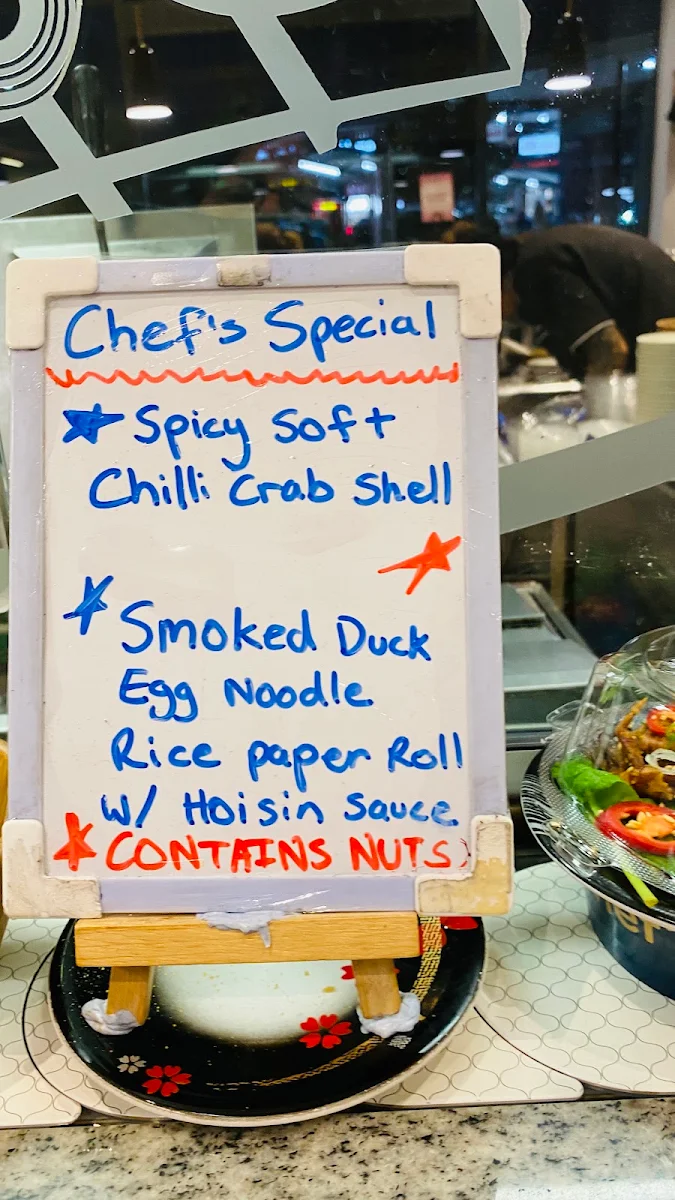 Chef's Special
Spicy Soft
Chilli Crab Shell
Smoked Duck
Egg Noodle
Rice paper Roll
w/ Hoisin Sauce
CONTAINS NUTS